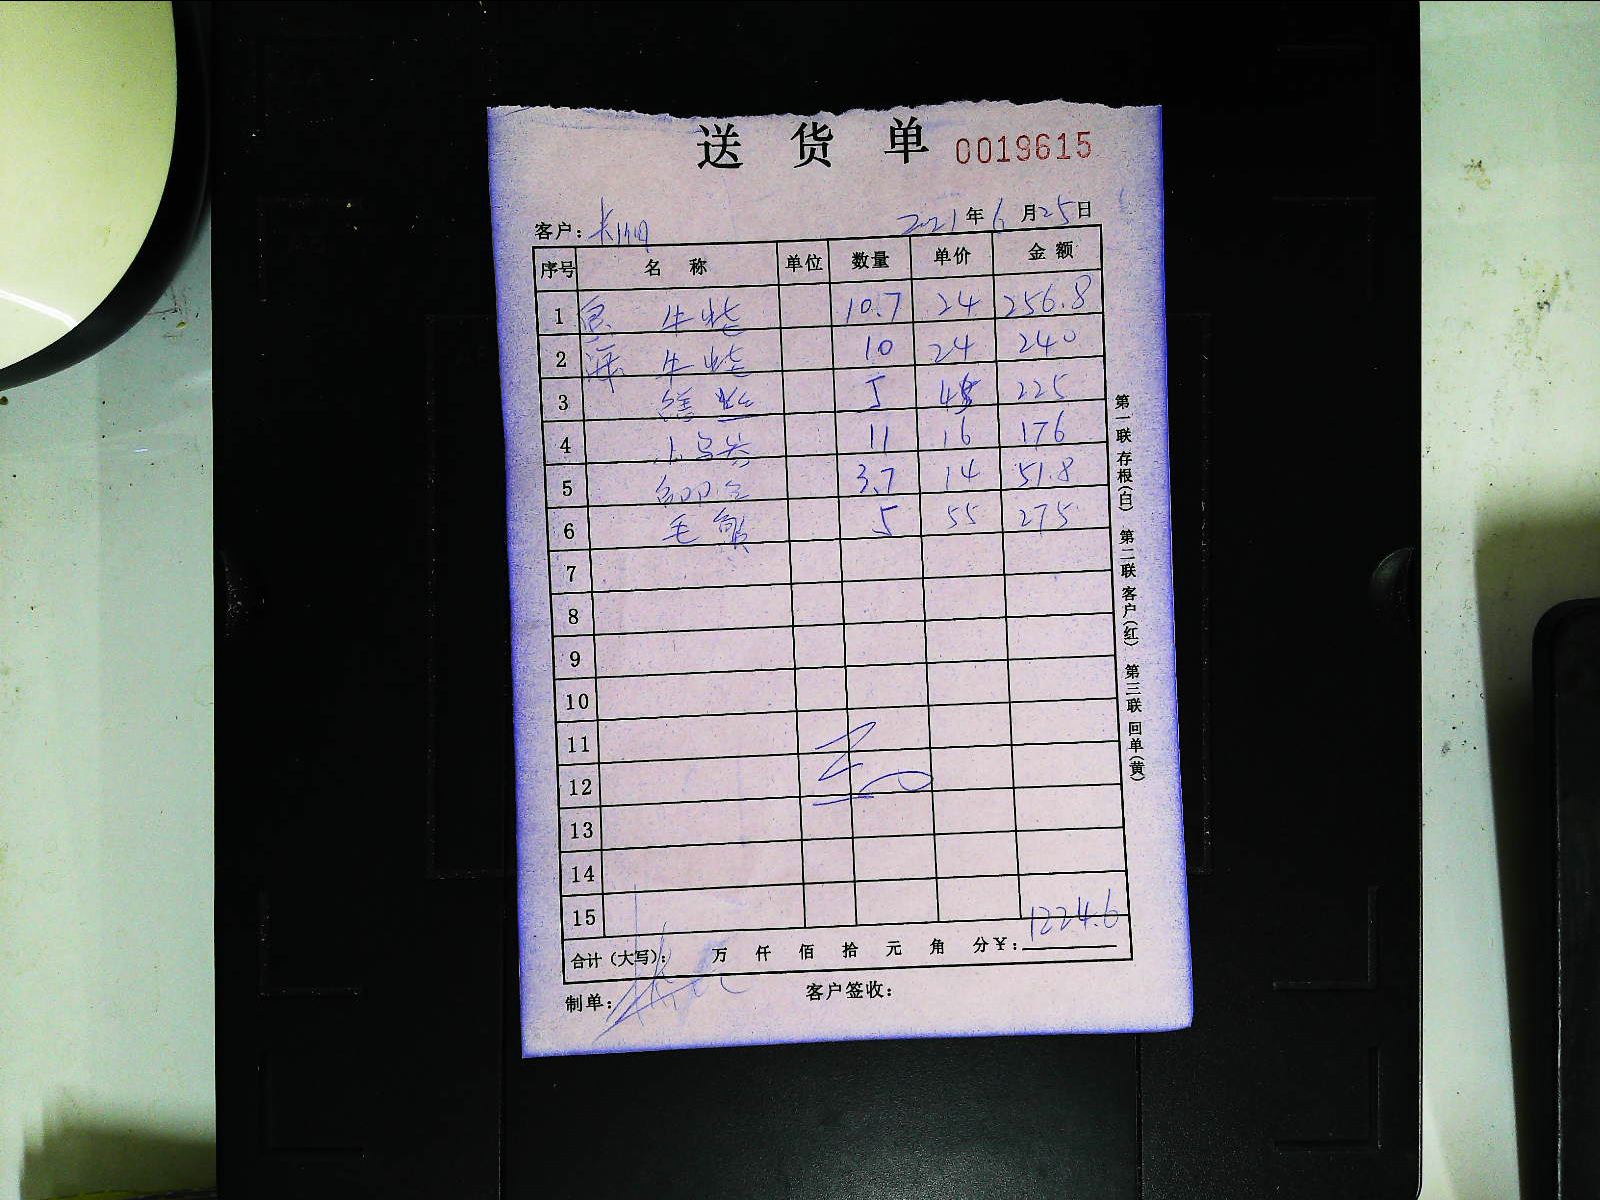 送 货 单 0019615
客户: 2021年6月25日
序号 名 称 单位 数量 单价 金额
1 牛蛙 10.7 24 256.8
2 牛蛙 10 24 240
3 5 45 225
4 11 16 176
5 3.7 14 51.8
6 毛蟹 5 55 275
7
8
9
10
11
12
13
14
15
合计(大写): 万 仟 佰 拾 元 角 分¥: 1224.6
制单: 客户签收:
第一联 存根(白) 第二联 客户(红) 第三联 回单(黄)